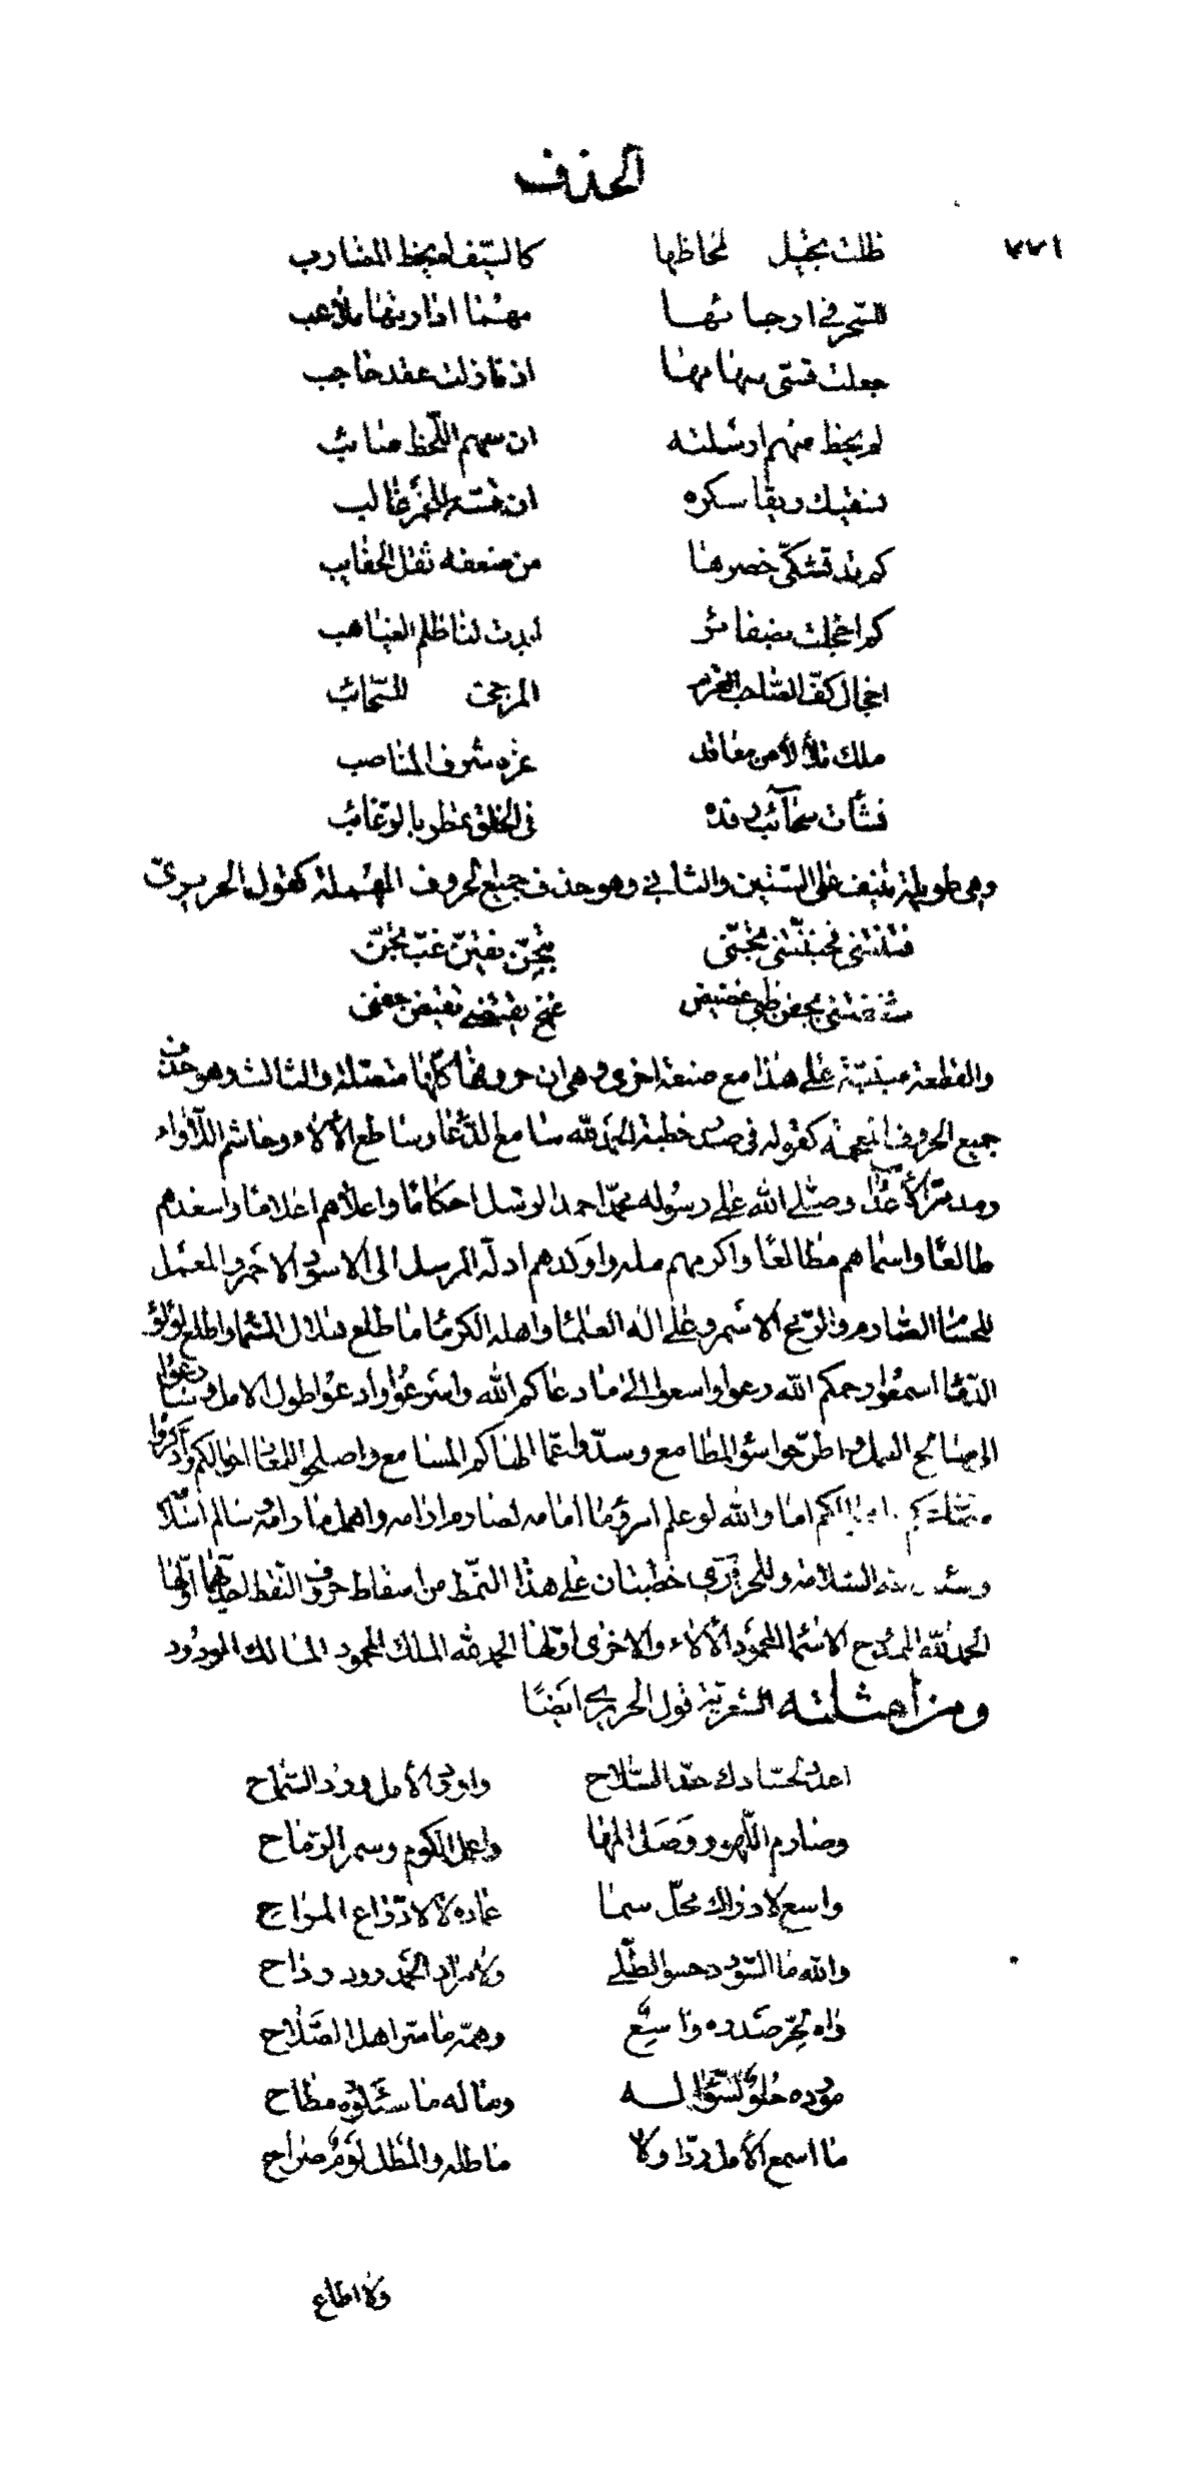 الحذف
٧٧١
ظلت بجميل لحاظها كالسيف لم يخط المضارب
للسحر في ارجائها مهما اذا رنتها ملاعب
جعلت قسي سهامها اذ ما زلت عقد حاجب
لم يخط منهم ارسلته ان سهم اللحظ صائب
تسقيك ريقا سكره ان قسته للخمر غالب
كم قد تشكى خصرها من ضعفه ثقل الحقايب
كم اخجلت بضفائر ابدت لنا ظلم الغياهب
اخجال كف الصاحب القرم المرجى للسحائب
ملك تلألأ من معاقد عزه شرف المناصب
نشأت سحآئب رفده في الخلق تمطر بالرغائب
وهي طويلة تنيف على الستين والثاني وهو حذف جميع الحروف المهملة كقول الحريري
فتنتني فجننتني تجني بتجن يفتن غب تجن
شغفتني بجفن ظبي غضيض غنج يقتضي تغيض جفني
والقطعة مبنية على هذا مع صنعة اخرى وهي ان حروفها كلها متصلة والثالث وهو حذف
جميع الحروف المعجمة كقوله في صدر خطبة الحمد لله سامع الدعاء وساطع الألاء وحاسم اللأواء
ومدمر الأعداء وصلى الله على رسوله محمد احمد الرسل احكاما واعلاهم اعلاما واسعدهم
طالعا واسماهم مطالعا واكرمهم ملة واوكدهم ادلة المرسل الى الاسود والاحمر والمعمل
للحسام الصارم والرمح الاسمر وعلى اله العلماء واهله الكرماء ما طلع هلال السماء واطلع لؤلؤ
الدماء اسمعوا رحمكم الله دعوا واسعوا الى ما دعاكم الله واسرعوا وادعوا طول الامل وسارعوا
الى صالح العمل واطرحوا سؤ المطامع وسدوا عما الهاكم المسامع واصلحوا للمعاد احوالكم واذكروا
اما والله لو علم امرؤ ما امامه لصارم ارامه واهمل مرامه وسالم اسلا
السلامة وللحريري خطبتان على هذا النمط من اسقاط حروف النقط احداهما اولها
الحمد لله الممدوح الاسماء المحمود الألاء والاخرى اولها الحمد لله الملك المحمود المالك الودود
ومن امثلته الشعرية قول الحريري ايضا
اعدد لحسادك حد السلاح واورد الامل ورد السماح
وصارم اللهو ووصل المها واعمل الكوم وسمر الرماح
واسع لادراك محل سما عماده لا لادراع المراح
والله ما السؤدد حسو الطلى ولا مراد الحمد رود رداح
واه لحر صدره واسع وهمه ما سر اهل الصلاح
مورده حلو لسؤاله وماله ما سئلوه مطاح
ما اسمع الأمل ردا ولا ماطله والمطل لؤم صراح
ولا اطاع